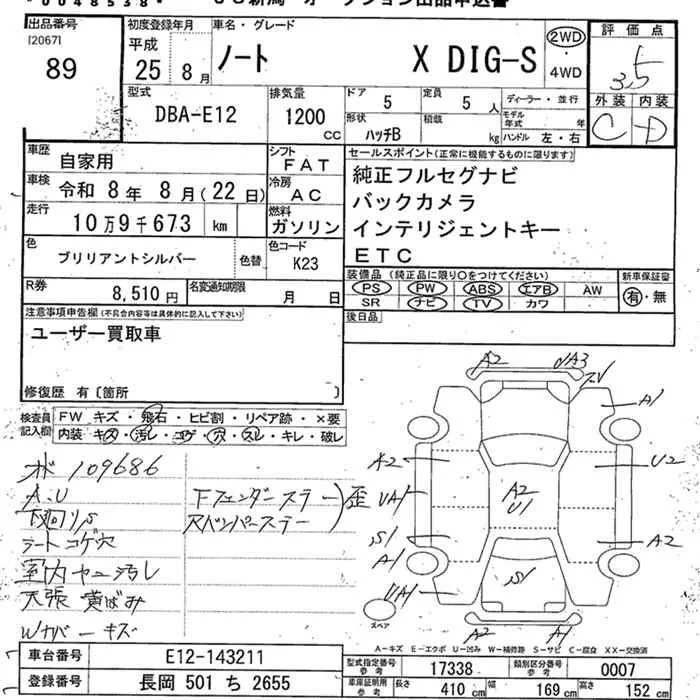 出品番号
I20671
89
初度登録年月
平成
25年 8月
車名・グレード
ノート X DIG-S
2WD
・
4WD
評価点
3.5
外装 内装
C D
型式
DBA-E12
排気量
1200
CC
ドア
5
定員
5人
形状
ハッチB
積載
kg
ディーラー・並行
モデル年式
年
ハンドル 左・右
車歴
自家用
シフト
FAT
車検
令和 8年 8月(22日)
冷房
AC
走行
10万9千673 km
燃料
ガソリン
色
ブリリアントシルバー
色替
色コード
K23
R券
8,510円
名変通知期限
月 日
セールスポイント(正常に機能するものに限ります)
純正フルセグナビ
バックカメラ
インテリジェントキー
ETC
装備品 (純正品に限り○をつけてください)
PS PW ABS エアB AW
SR ナビ TV カワ
新車保証書
有・無
後日品
注意事項申告欄(不具合内容等は具体的に記入して下さい)
ユーザー買取車
修復歴 有〔箇所 〕
検査員記入欄
FW キズ・飛石・ヒビ割・リペア跡・×要
内装 キズ・汚レ・コゲ・穴・スレ・キレ・破レ
109686
A.U
シートコゲ穴
室内ヤニ汚レ
天張 黄ばみ
Wカバーキズ
Fフェンダーステー
Rバンパーステー
歪
A2
A3
A1
A2
U2
UA1
A2
U1
S1
A2
A1
S1
UA1
A2
A1
スペア
A-キズ E-エクボ U-凹み W-補修跡 S-サビ C-腐食 XX-交換済
車台番号
E12-143211
登録番号
長岡 501 ち 2655
型式指定番号
参考
17338
類別区分番号
参考
0007
車庫証明用
参考
長さ 410 cm
幅 169 cm
高さ 152 cm